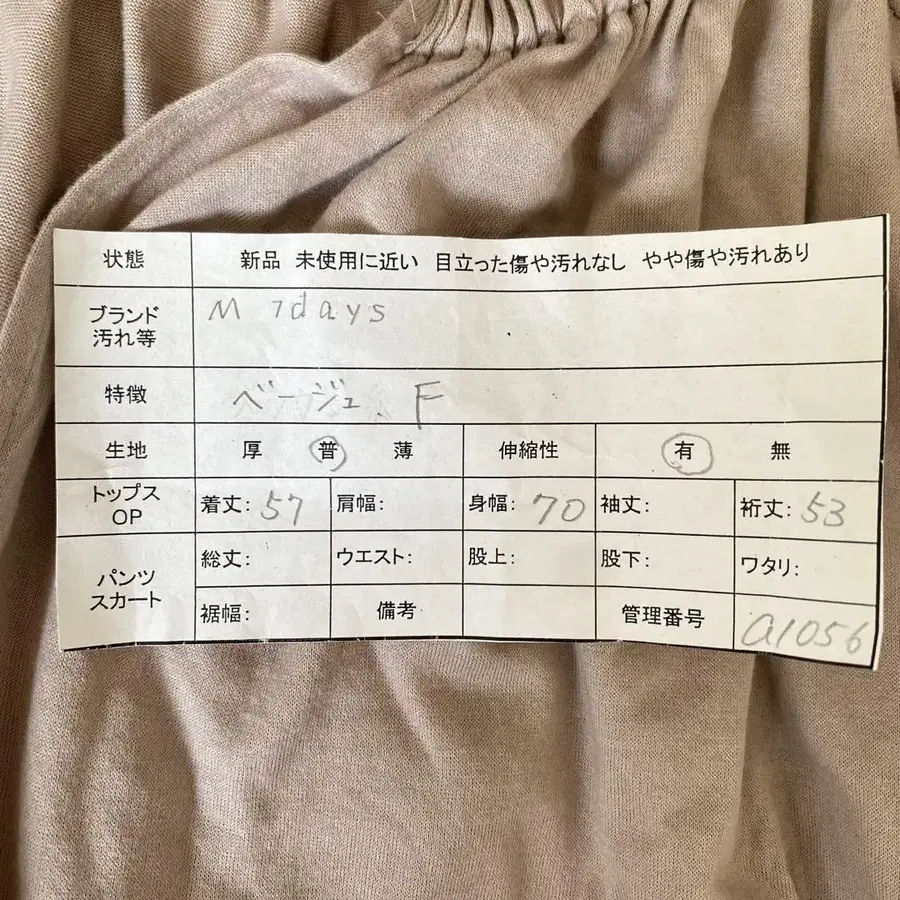 状態 新品 未使用に近い 目立った傷や汚れなし やや傷や汚れあり
ブランド
汚れ等
M 7days
特徴 ベージュ、F
生地 厚 普 薄 伸縮性 有 無
トップス
OP
着丈: 57 肩幅: 身幅: 70 袖丈: 裄丈: 53
パンツ
スカート
総丈: ウエスト: 股上: 股下: ワタリ:
裾幅: 備考 管理番号 a1056